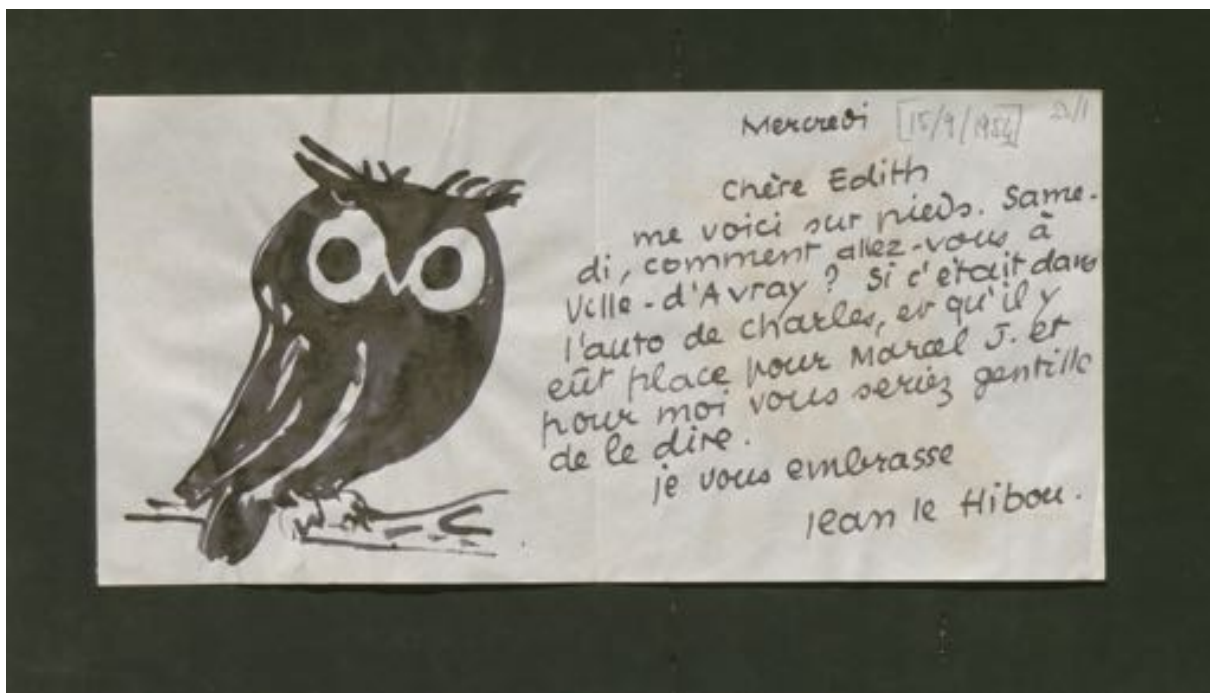 Mercredi [15/9/1954]
Chère Edith
me voici sur pieds. Same-
di, comment allez-vous à
Ville-d'Avray ? Si c'était dans
l'auto de Charles, et qu'il y
eût place pour Marcel J. et
pour moi vous seriez gentille
de le dire.
je vous embrasse
Jean le Hibou.